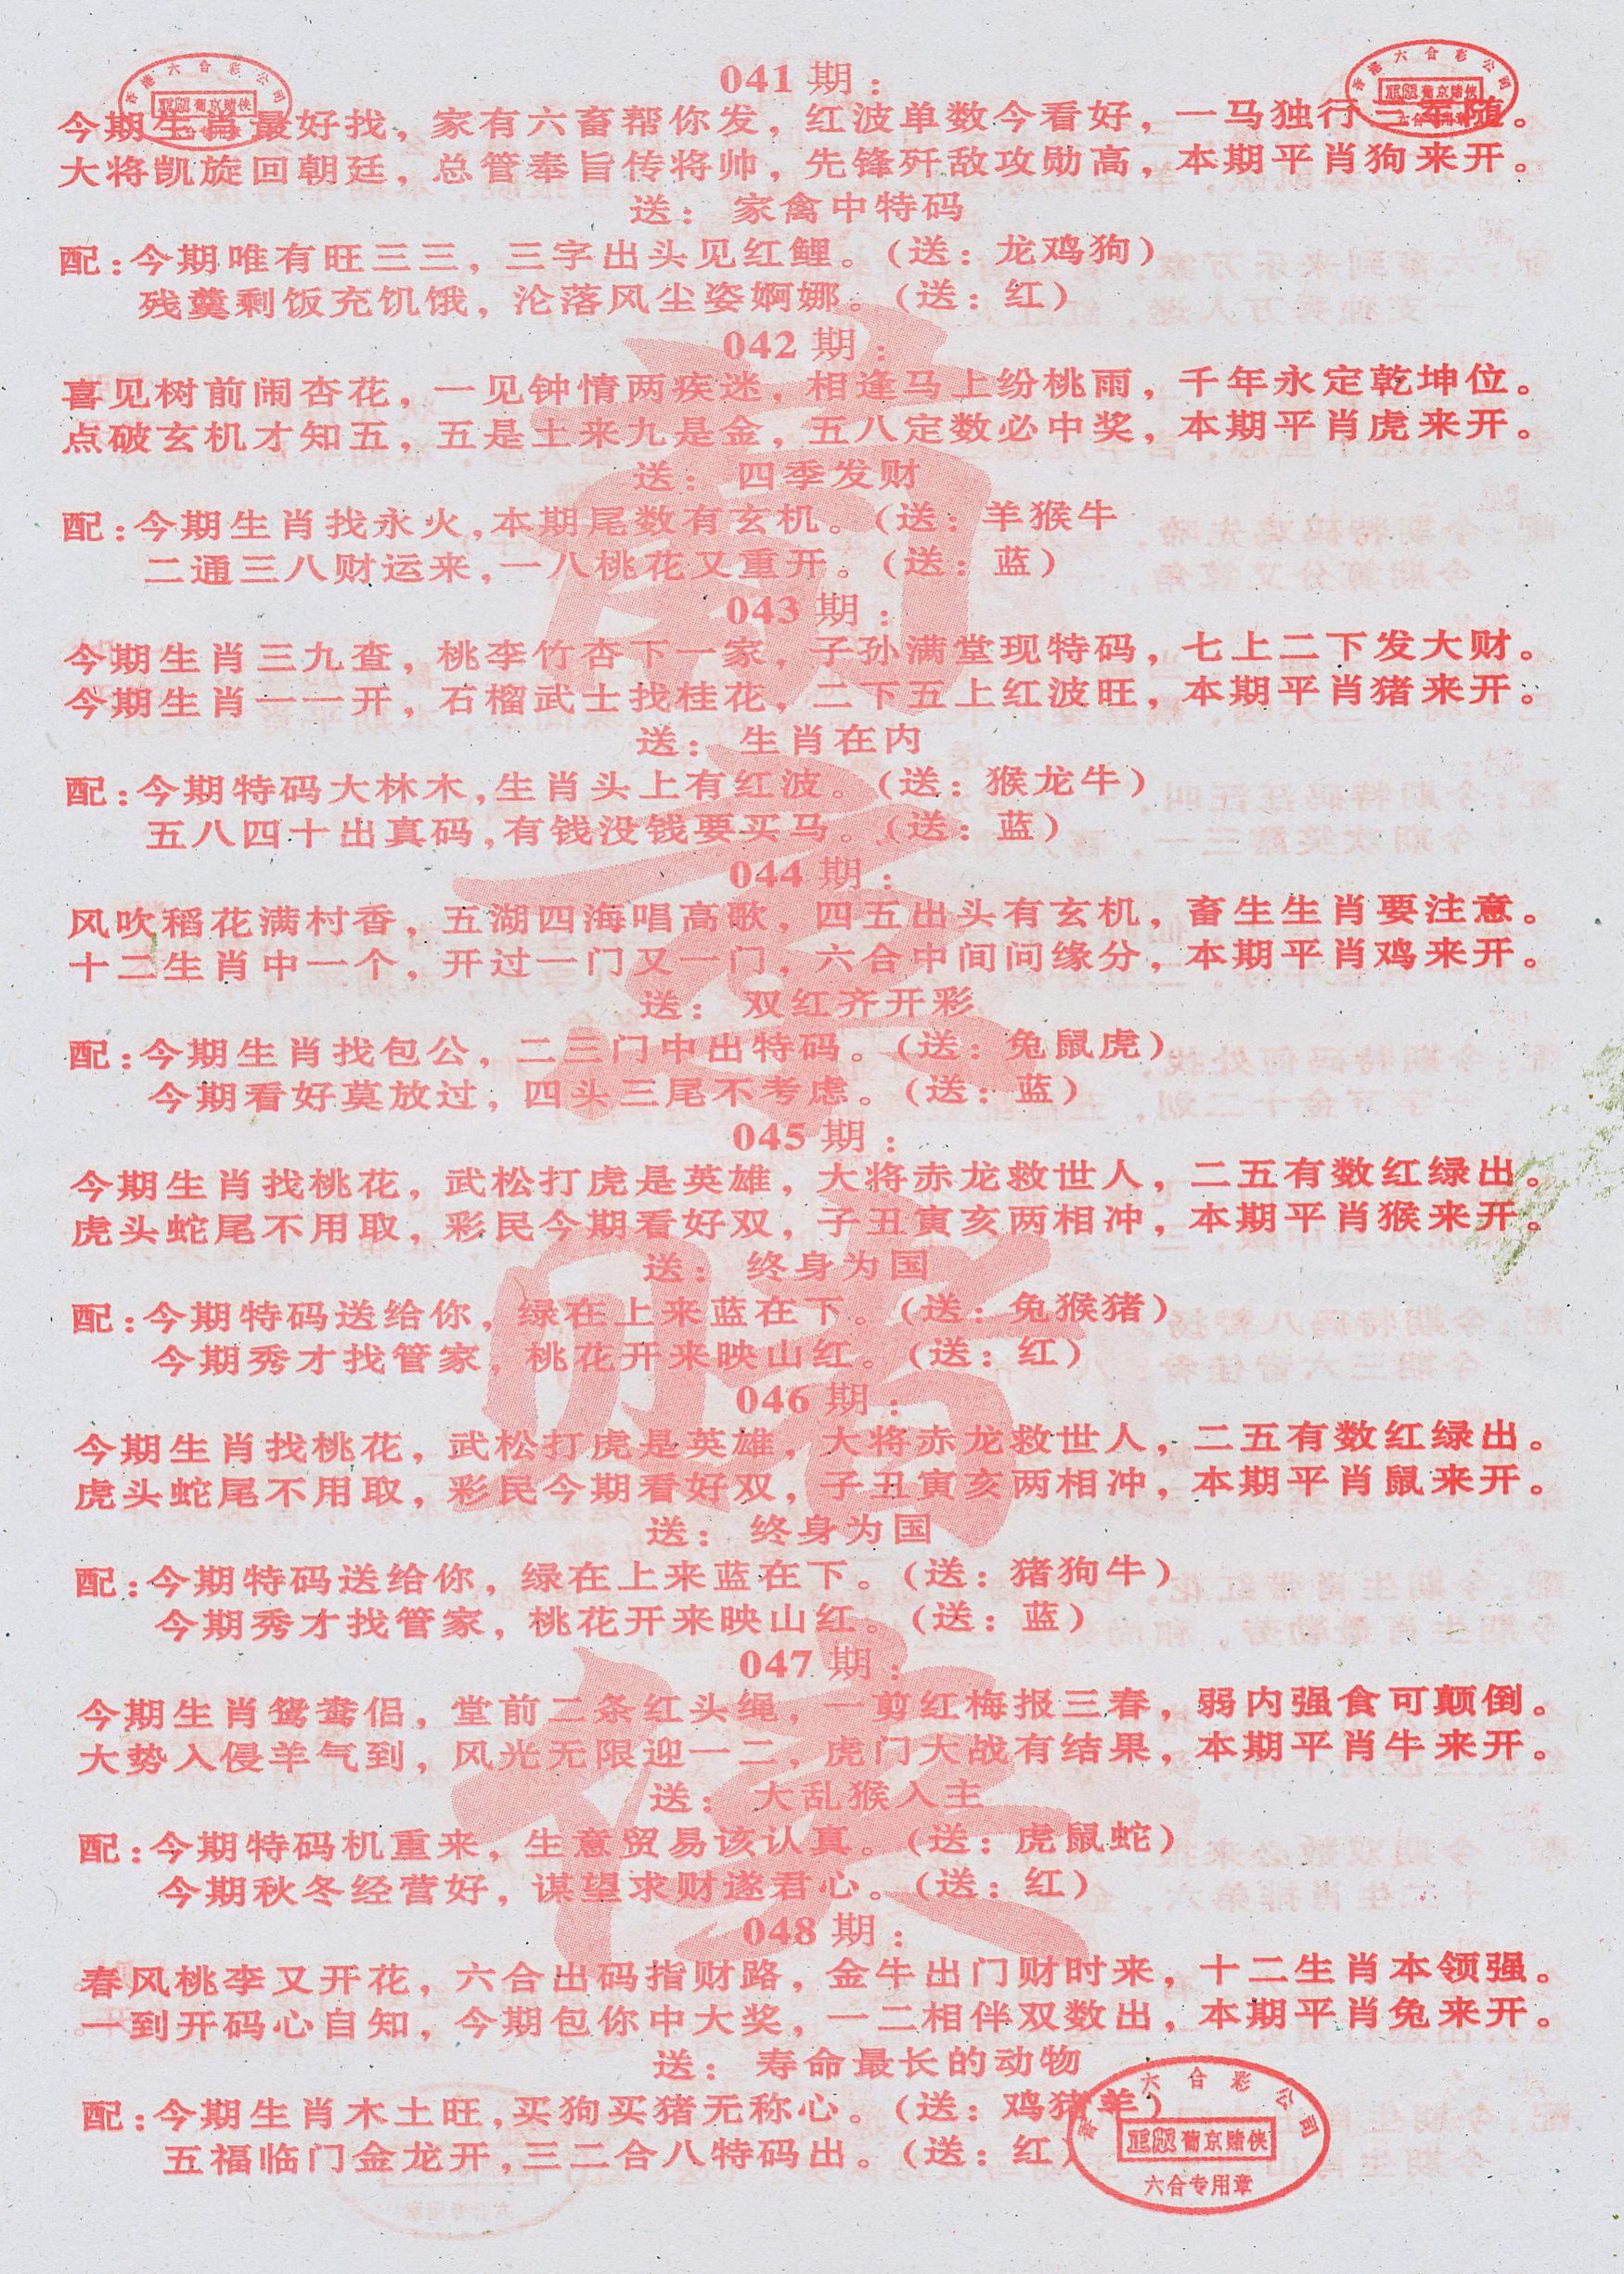 041期：
今期生肖最好找，家有六畜帮你发，红波单数今看好，一马独行三车随。
大将凯旋回朝廷，总管奉旨传将帅，先锋歼敌攻勋高，本期平肖狗来开。
送：家禽中特码
配：今期唯有旺三三，三字出头见红鲤。（送：龙鸡狗）
残羹剩饭充饥饿，沦落风尘姿婀娜。（送：红）
042期：
喜见树前闹杏花，一见钟情两疾迷，相逢马上纷桃雨，千年永定乾坤位。
点破玄机才知五，五是土来九是金，五八定数必中奖，本期平肖虎来开。
送：四季发财
配：今期生肖找永火，本期尾数有玄机。（送：羊猴牛
二通三八财运来，一八桃花又重开。（送：蓝）
043期：
今期生肖三九查，桃李竹杏下一家，子孙满堂现特码，七上二下发大财。
今期生肖一一开，石榴武士找桂花，二下五上红波旺，本期平肖猪来开。
送：生肖在内
配：今期特码大林木，生肖头上有红波。（送：猴龙牛）
五八四十出真码，有钱没钱要买马。（送：蓝）
044期：
风吹稻花满村香，五湖四海唱高歌，四五出头有玄机，畜生生肖要注意。
十二生肖中一个，开过一门又一门，六合中间问缘分，本期平肖鸡来开。
送：双红齐开彩
配：今期生肖找包公，二三门中出特码。（送：兔鼠虎）
今期看好莫放过，四头三尾不考虑。（送：蓝）
045期：
今期生肖找桃花，武松打虎是英雄，大将赤龙救世人，二五有数红绿出。
虎头蛇尾不用取，彩民今期看好双，子丑寅亥两相冲，本期平肖猴来开。
送：终身为国
配：今期特码送给你，绿在上来蓝在下。（送：兔猴猪）
今期秀才找管家，桃花开来映山红。（送：红）
046期：
今期生肖找桃花，武松打虎是英雄，大将赤龙救世人，二五有数红绿出。
虎头蛇尾不用取，彩民今期看好双，子丑寅亥两相冲，本期平肖鼠来开。
送：终身为国
配：今期特码送给你，绿在上来蓝在下。（送：猪狗牛）
今期秀才找管家，桃花开来映山红。（送：蓝）
047期：
今期生肖鸳鸯侣，堂前二条红头绳，一剪红梅报三春，弱内强食可颠倒。
大势入侵羊气到，风光无限迎一二，虎门大战有结果，本期平肖牛来开。
送：大乱猴入主
配：今期特码机重来，生意贸易该认真。（送：虎鼠蛇）
今期秋冬经营好，谋望求财遂君心。（送：红）
048期：
春风桃李又开花，六合出码指财路，金牛出门财时来，十二生肖本领强。
一到开码心自知，今期包你中大奖，一二相伴双数出，本期平肖兔来开。
送：寿命最长的动物
配：今期生肖木土旺，买狗买猪无称心。（送：鸡猪羊）
五福临门金龙开，三二合八特码出。（送：红）
香港六合彩公司
正版葡京赌侠
六合专用章
葡京赌侠